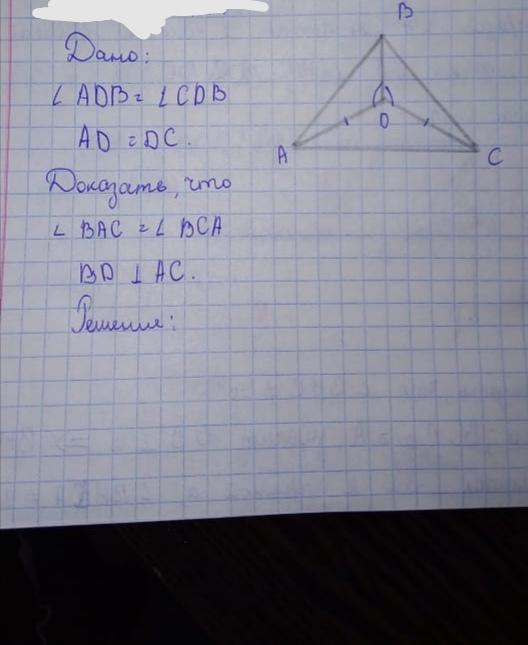 Дано:
∠ ADB = ∠ CDB
AD = DC.
Доказать, что
∠ BAC = ∠ BCA
BD ⊥ AC.
Решение:
B
D
A
C